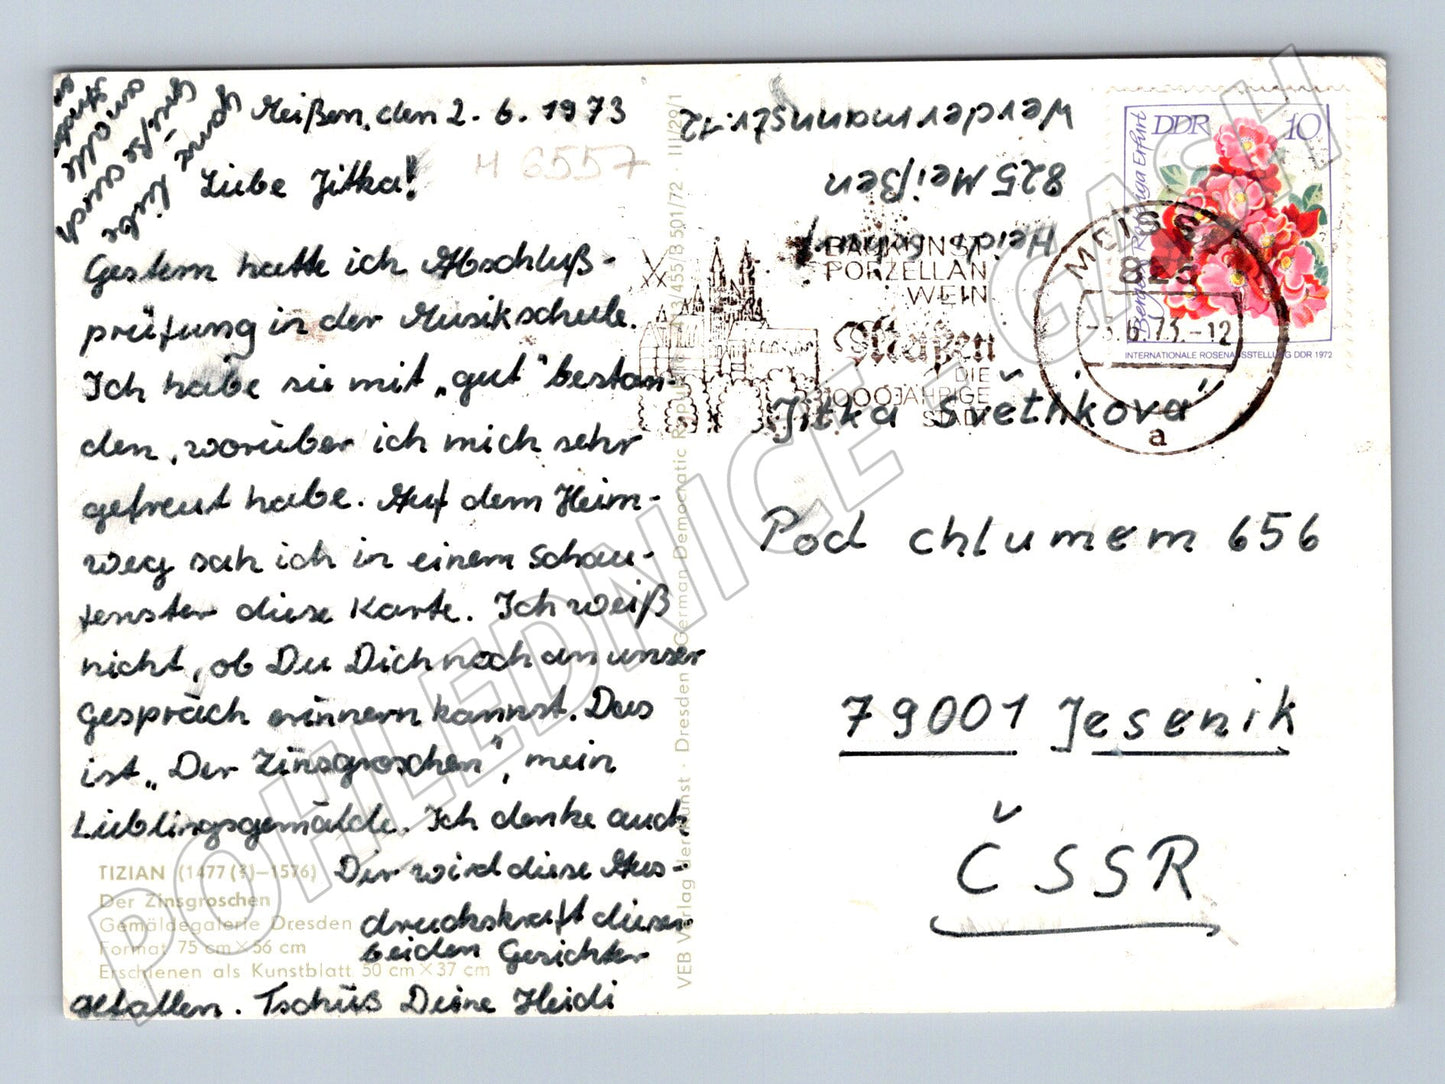 Meißen, den 2. 6. 1973
Liebe Jitka!
Gestern hatte ich Abschluß-
prüfung in der Musikschule.
Ich habe sie mit „gut" bestan-
den, worüber ich mich sehr
gefreut habe. Auf dem Heim-
weg sah ich in einem Schau-
fenster diese Karte. Ich weiß
nicht, ob Du Dich noch an unser
Gespräch erinnern kannst. Das
ist „Der Zinsgroschen", mein
Lieblingsgemälde. Ich denke auch
Dir wird diese Aus-
druckskraft dieser
beiden Gesichter
gefallen. Tschüß Deine Heidi
ganz liebe
Grüße und
TIZIAN (1477(?)–1576)
Der Zinsgroschen
Gemäldegalerie Dresden
Format 75 cm × 56 cm
Erschienen als Kunstblatt 50 cm × 37 cm
VEB Verlag der Kunst · Dresden · German Democratic Republic · A 3/455/B 501/72 · II/29/1
H 6557
Heidi
825 Meißen
Werdermannstr. 12
BAUKUNST
PORZELLAN
WEIN
Meißen
DIE
1000 JÄHRIGE
STADT
MEISSEN
825
-3.6.73.-12
a
DDR 10
Berger's Rose, iga Erfurt
INTERNATIONALE ROSENAUSSTELLUNG DDR 1972
Jitka Světlíková
Pod chlumem 656
79001 Jesenik
ČSSR
POHLEDNICE - CASH